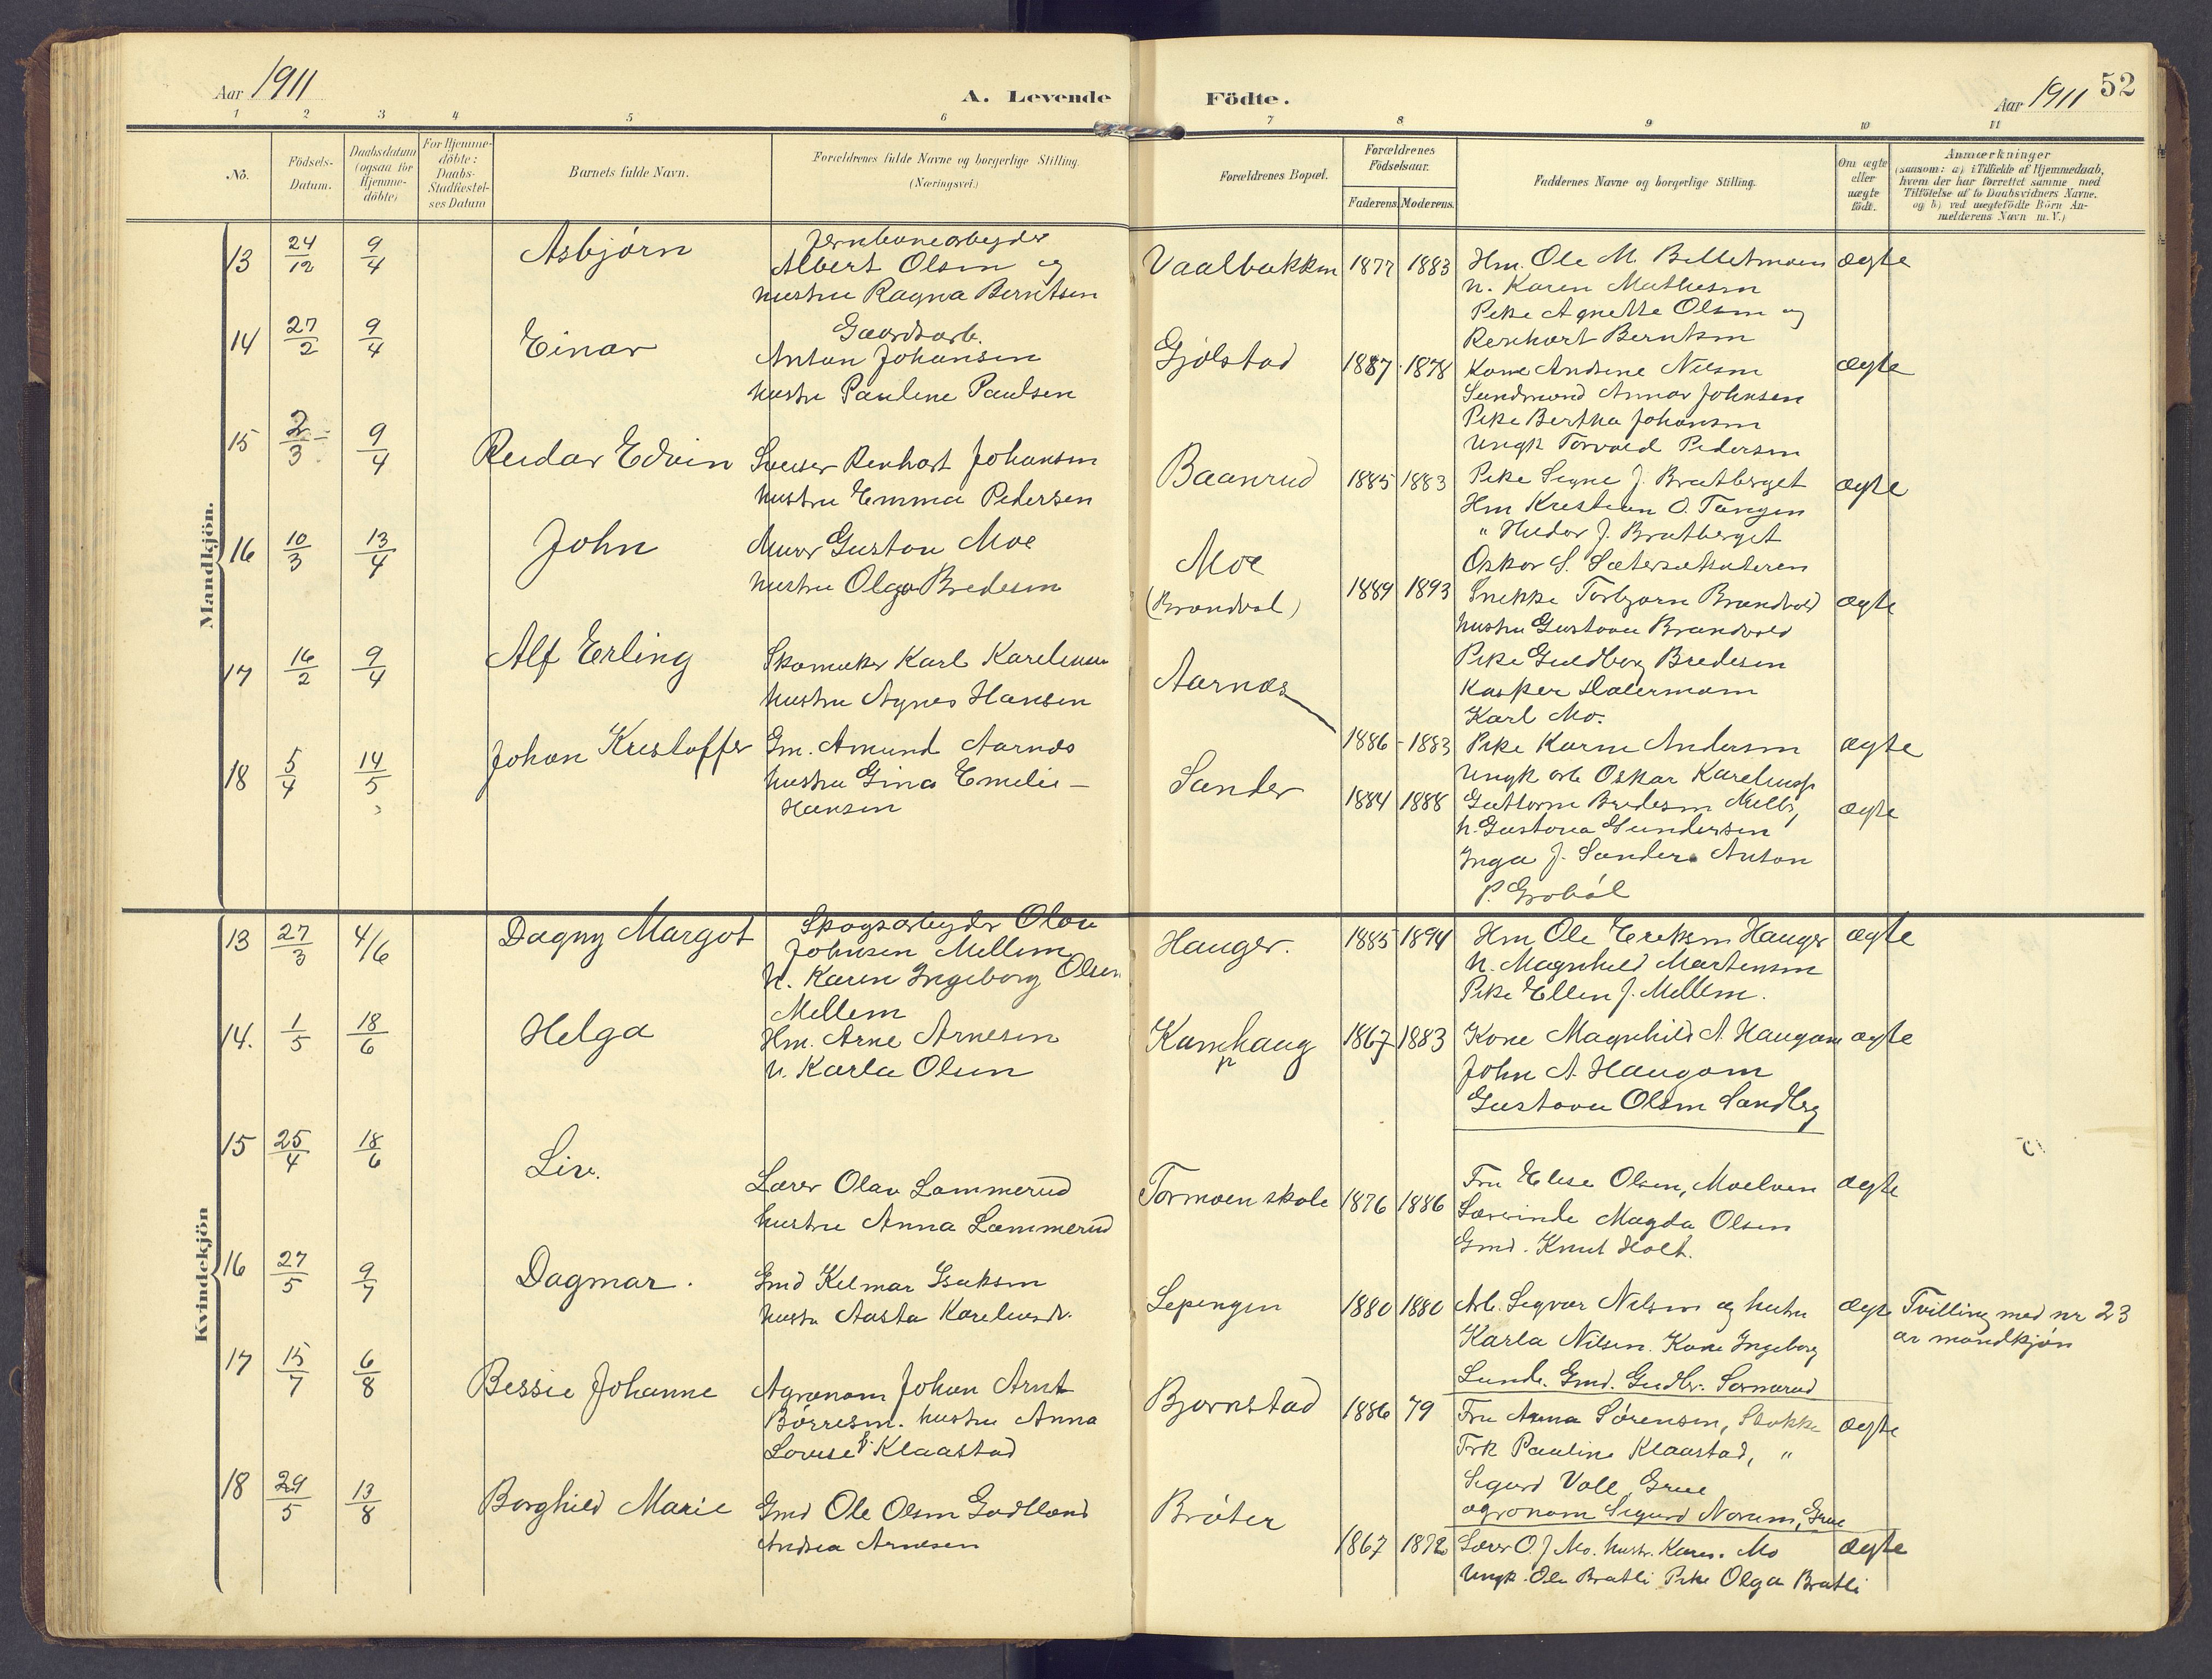 Aar 1911
A. Levende
Födte.
Aar 1911
52
1 2 3 4 5 6 7 8 9 10 11
No.
Födsels-
Datum.
Daabsdatum
(ogsaa for
Hjemme-
döbte)
For Hjemme-
döbte:
Daabs-
Stadfæstel-
ses Datum
Barnets fulde Navn.
Forældrenes fulde Navne og borgerlige Stilling.
(Næringsvei.)
Forældrenes Bopæl.
Forældrenes
Födselsaar.
Faderens. Moderens.
Faddernes Navne og borgerlige Stilling.
Om ægte
eller
uægte
födt.
Anmærkninger
(saasom: a) i Tilfælde af Hjemmedaab,
hvem der har forrettet samme med
Tilföielse af to Daabsvidners Navne.
og b) ved uægtefödte Börn An-
melderens Navn m. V.)
Mandkjön.
13 24/12 9/4 Asbjørn
Jernbanearbeyder
Albert Olsen og
hustru Ragna Berntsen
Vaalbakken 1877 1883
Hm. Ole M. Billetmoen
h. Karen Mathesen
Pike Agnette Olsen og
Renhart Berntsen
ægte
14 27/2 9/4 Einar
Gaardsarb.
Anton Johansen
hustru Pauline Paulsen
Gjølstad 1887 1878
Kone Andrine Nilsen
Sundmand Annar Johnsen
Pike Bertha Johansen
Ungk Torvald Pedersen
ægte
15 2/3 9/4 Reidar Edvin
Sveiser Renhart Johansen
hustru Emma Pedersen
Baanrud 1885 1883
Pike Signe J. Bratberget
Hm Kristian O. Tangen
" Hedor J. Bratberget
Oskar S.
ægte
16 10/3 13/4 John
Murer Gustav Moe
hustru Olga Bredesen
Moe
(Brandval)
1889 1893
Snekke Torbjørn Brandvold
hustru Gustava Brandvold
Pike Guldborg Bredesen
Kasper Dalermoen
Karl Mo.
ægte
17 16/2 9/4 Alf Erling
Skomaker Karl Kareliussen
hustru Agnes Hansen
Aarnæs 1886 - 1883
Pike Karen Andersen
Ungk arb Oskar Kareliuss
ægte
18 5/4 14/5 Johan Kristoffer
Gm. Amund Aarnæs
hustru Gina Emelie -
Hansen
Sander 1884 1888
Guttorm Bredesen Melby,
h. Gustava Gundersen
Inga J. Sander. Anton
P. Grobøl
ægte
Kvindekjön
13 27/3 4/6 Dagny Margot
Skogsarbeyder Olav
Johnsen Mellem
h. Karen Ingeborg Olsen
Mellem
Hauger. 1885 1894
Hm. Ole Eriksen Hauger
h. Magnhild Martensen
Pike Ellen J. Mellem.
ægte
14. 1/5 18/6 Helga
Hm. Arne Arnesen
h. Karla Olsen
Kamhaug 1867 1883
Kone Magnhild A. Haugom
John A. Haugom
Gustava Olsen Sandberg
ægte
15 25/4 18/6 Liv.
Lærer Olav Lommerud
hustru Anna Lommerud
Tormoen skole 1876 1886
Fru Elise Olsen, Moelven
Lærerinde Magda Olsen
Gmd. Knut Holt.
ægte
16 27/5 9/7 Dagmar.
Gmd Helmar Isaksen
hustr Aasta Kareliusdr.
Sepengen 1880 1880
Arb. Sigvar Nilsen og hustru
Karla Nilsen. Kone Ingeborg
Lunde. Gmd. Gudbr. Sormerud
ægte
Tvilling med nr 23
av mandkjøn
17 15/7 6/8 Bessie Johanne
Agronom Johan Arnt
Børresen. hustru Anna
Lovise f. Klaastad
Bjørnstad 1886 79
Fru Anna Sørensen, Stokke
Frk Pauline Klaastad, "
Sigurd Voll, Grue
agronom Sigurd Norum, Grue
ægte
18 29/5 13/8 Borghild Marie
Gmd Ole Olsen Godtland
Andrea Arnesen
Brøter 1867 1872
Lærer O. J. Mo. hustr. Karen. Mo
Ungk. Ole Bratli Pike Olga Bratli
ægte